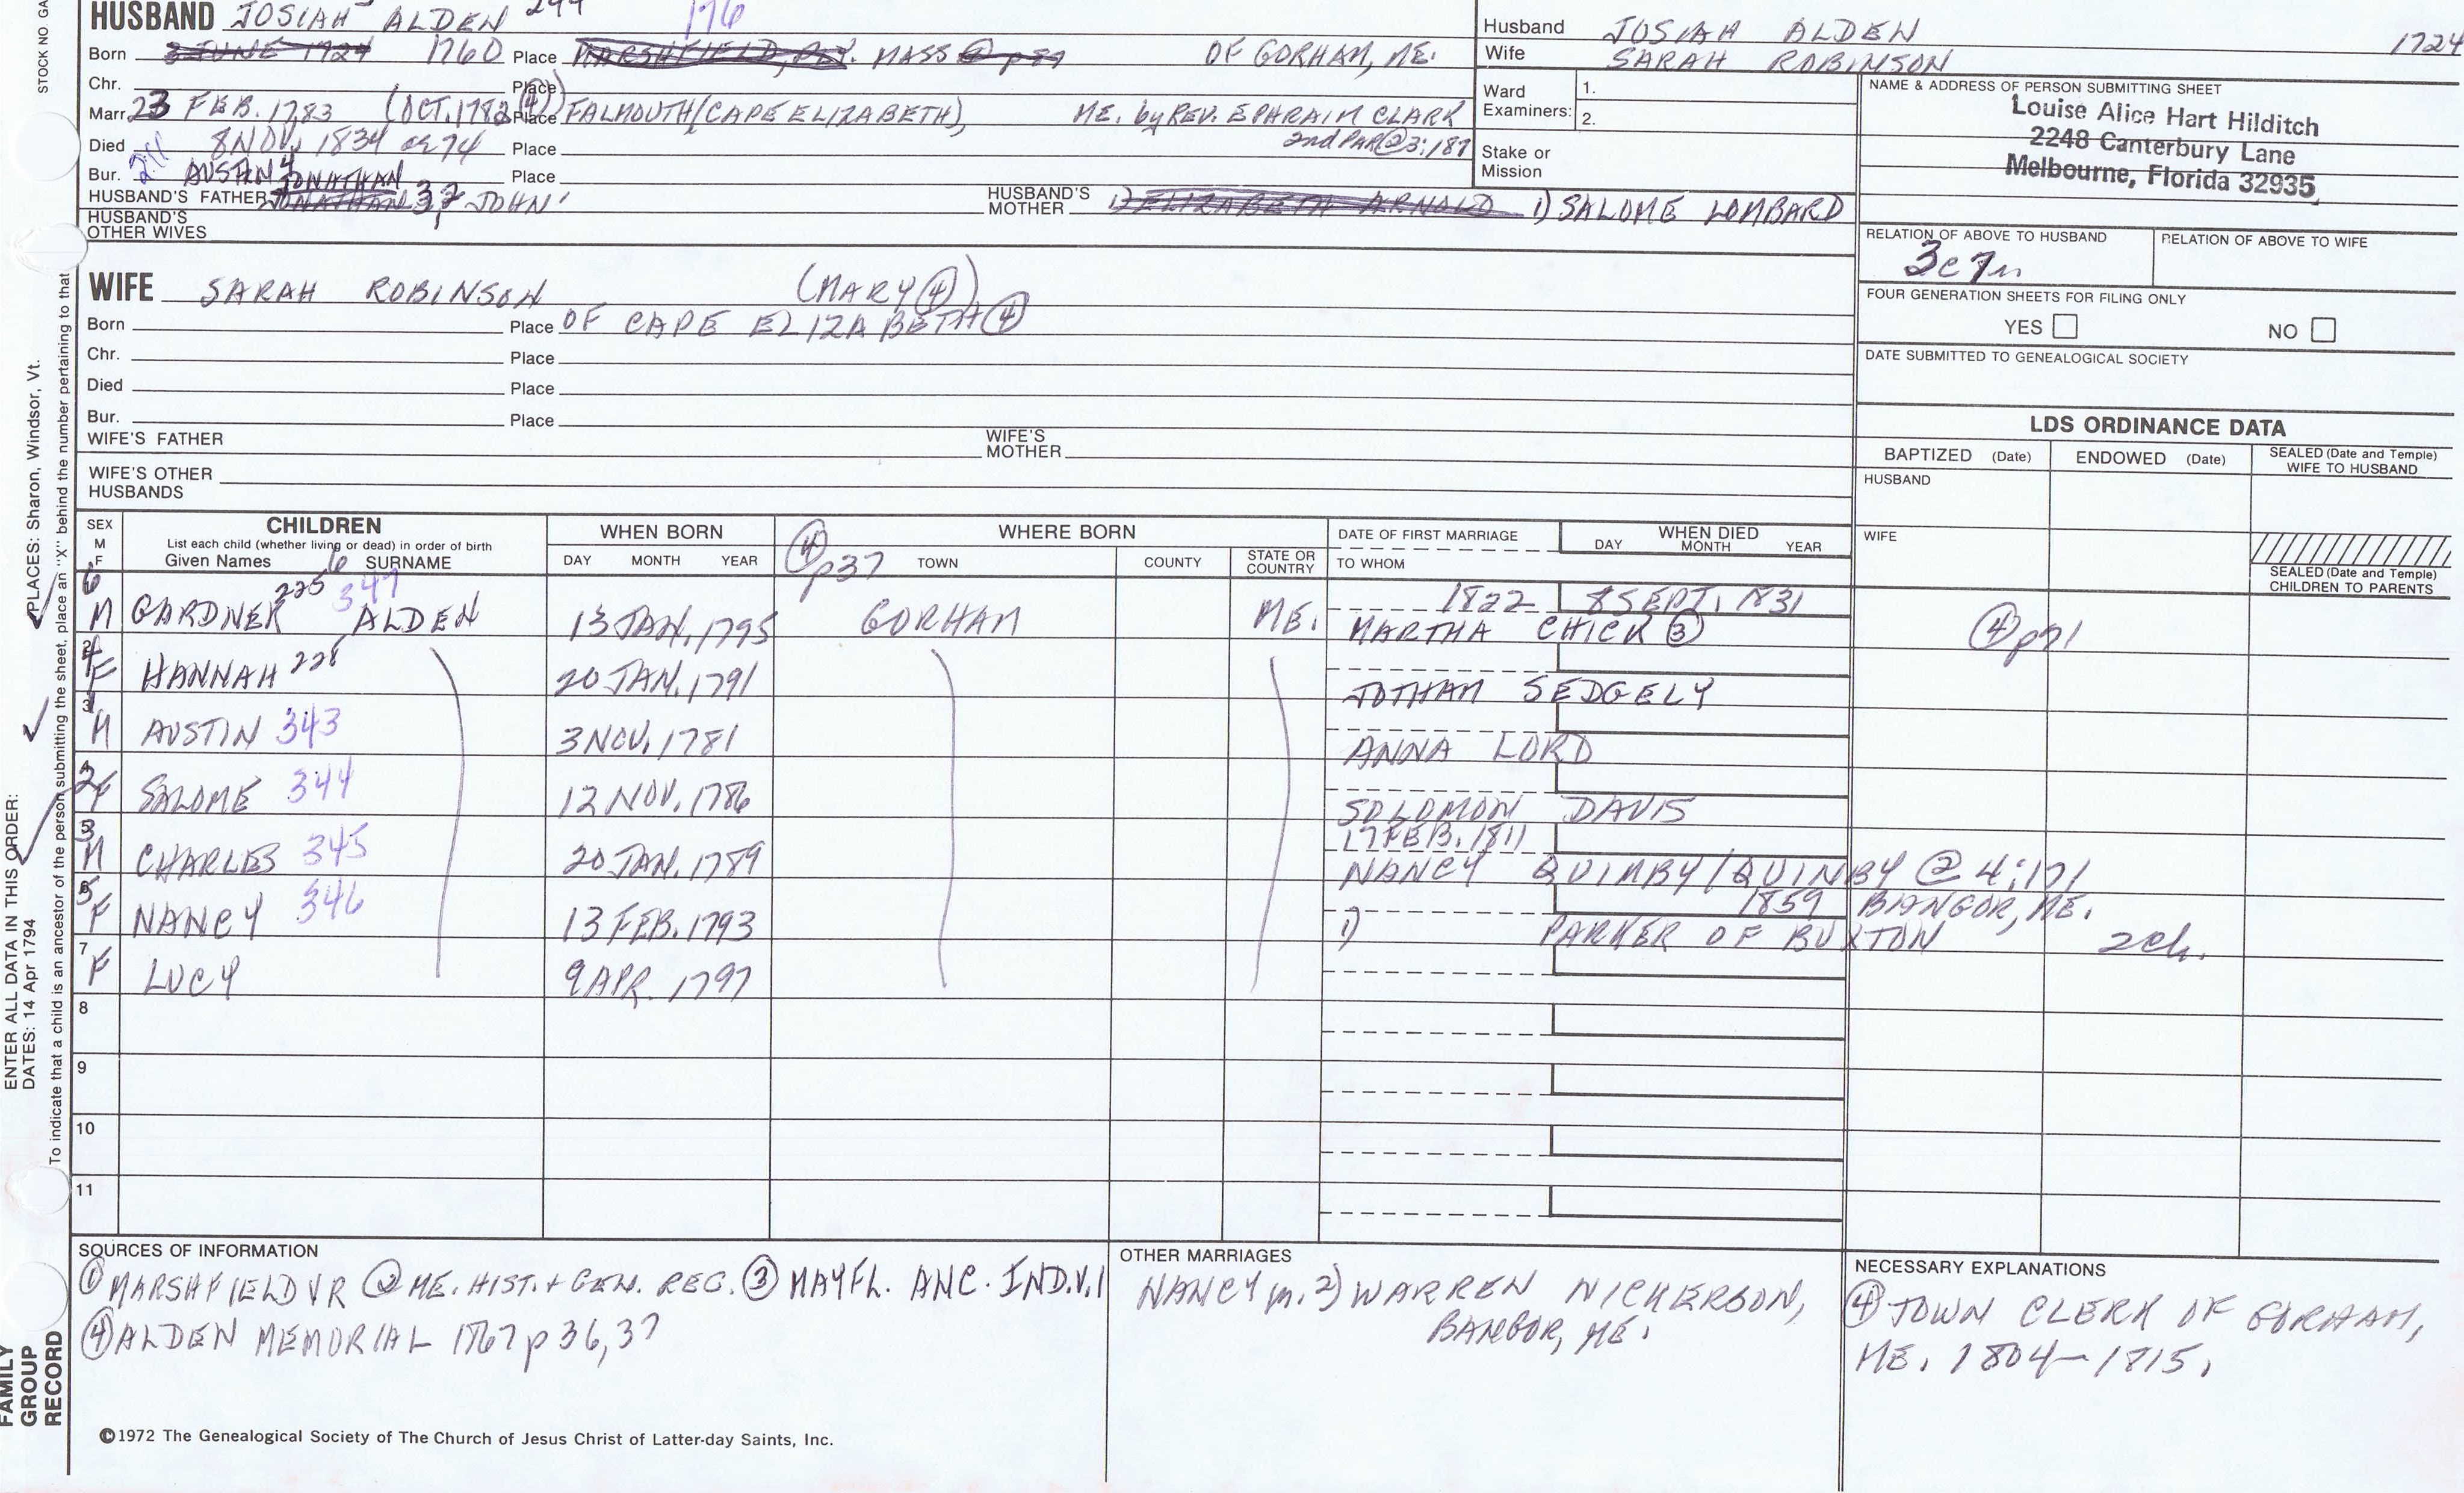 HUSBAND JOSIAH ALDEN 176
Born 3 JUNE 1724 1760 Place MARSHFIELD, MASS OF GORHAM, ME.
Chr. Place
Marr. 23 FEB. 1783 (OCT. 1782 ④) Place FALMOUTH (CAPE ELIZABETH), ME. by REV. EPHRAIM CLARK
2nd PAR ② 3:187
Died 8 NOV. 1834 ae 74 Place
Bur. Place
AUSTIN 4 JONATHAN
HUSBAND'S FATHER JONATHAN 3, 2 JOHN 1
HUSBAND'S MOTHER 1) ELIZABETH ARNOLD 1) SALOME LOMBARD
HUSBAND'S OTHER WIVES
Husband JOSIAH ALDEN 1724
Wife SARAH ROBINSON
Ward Examiners: 1.
2.
Stake or Mission
NAME & ADDRESS OF PERSON SUBMITTING SHEET
Louise Alice Hart Hilditch
2248 Canterbury Lane
Melbourne, Florida 32935
RELATION OF ABOVE TO HUSBAND RELATION OF ABOVE TO WIFE
3c7r
FOUR GENERATION SHEETS FOR FILING ONLY
YES NO
DATE SUBMITTED TO GENEALOGICAL SOCIETY
WIFE SARAH ROBINSON (MARY ④)
Born Place OF CAPE ELIZABETH ④
Chr. Place
Died Place
Bur. Place
WIFE'S FATHER WIFE'S MOTHER
WIFE'S OTHER HUSBANDS
LDS ORDINANCE DATA
BAPTIZED (Date) ENDOWED (Date) SEALED (Date and Temple) WIFE TO HUSBAND
HUSBAND
WIFE
SEALED (Date and Temple) CHILDREN TO PARENTS
SEX M F
CHILDREN
List each child (whether living or dead) in order of birth
Given Names 6 SURNAME
WHEN BORN
DAY MONTH YEAR
④ p37
WHERE BORN
TOWN COUNTY STATE OR COUNTRY
DATE OF FIRST MARRIAGE
TO WHOM
WHEN DIED
DAY MONTH YEAR
6 M GARDNER 225 347 ALDEN 13 JAN. 1795 GORHAM ME. 1822 8 SEPT. 1831
MARTHA CHICK ③ ④ p71
4 F HANNAH 228 20 JAN. 1791 JOTHAM SEDGELY
1 M AUSTIN 343 3 NOV. 1781 ANNA LORD
2 F SALOME 344 12 NOV. 1786 SOLOMON DAVIS
3 M CHARLES 345 20 JAN. 1789 17 FEB. 1811
NANCY QUIMBY/QUINBY ② 4:171
5 F NANCY 346 13 FEB. 1793 1859 BANGOR, ME.
1) PARKER OF BUXTON 2ch.
7 F LUCY 9 APR. 1797
8
9
10
11
SOURCES OF INFORMATION
① MARSHFIELD VR ② ME. HIST. + GEN. REC. ③ MAYFL. ANC. IND. V. 1
④ ALDEN MEMORIAL 1867 p 36, 37
OTHER MARRIAGES
NANCY m. 2) WARREN NICKERSON,
BANGOR, ME.
NECESSARY EXPLANATIONS
④ TOWN CLERK OF GORHAM,
ME. 1804–1815.
©1972 The Genealogical Society of The Church of Jesus Christ of Latter-day Saints, Inc.
STOCK NO. GA
PLACES: Sharon, Windsor, Vt.
ENTER ALL DATA IN THIS ORDER:
DATES: 14 Apr 1794
To indicate that a child is an ancestor of the person submitting the sheet, place an "X" behind the number pertaining to that
FAMILY GROUP RECORD